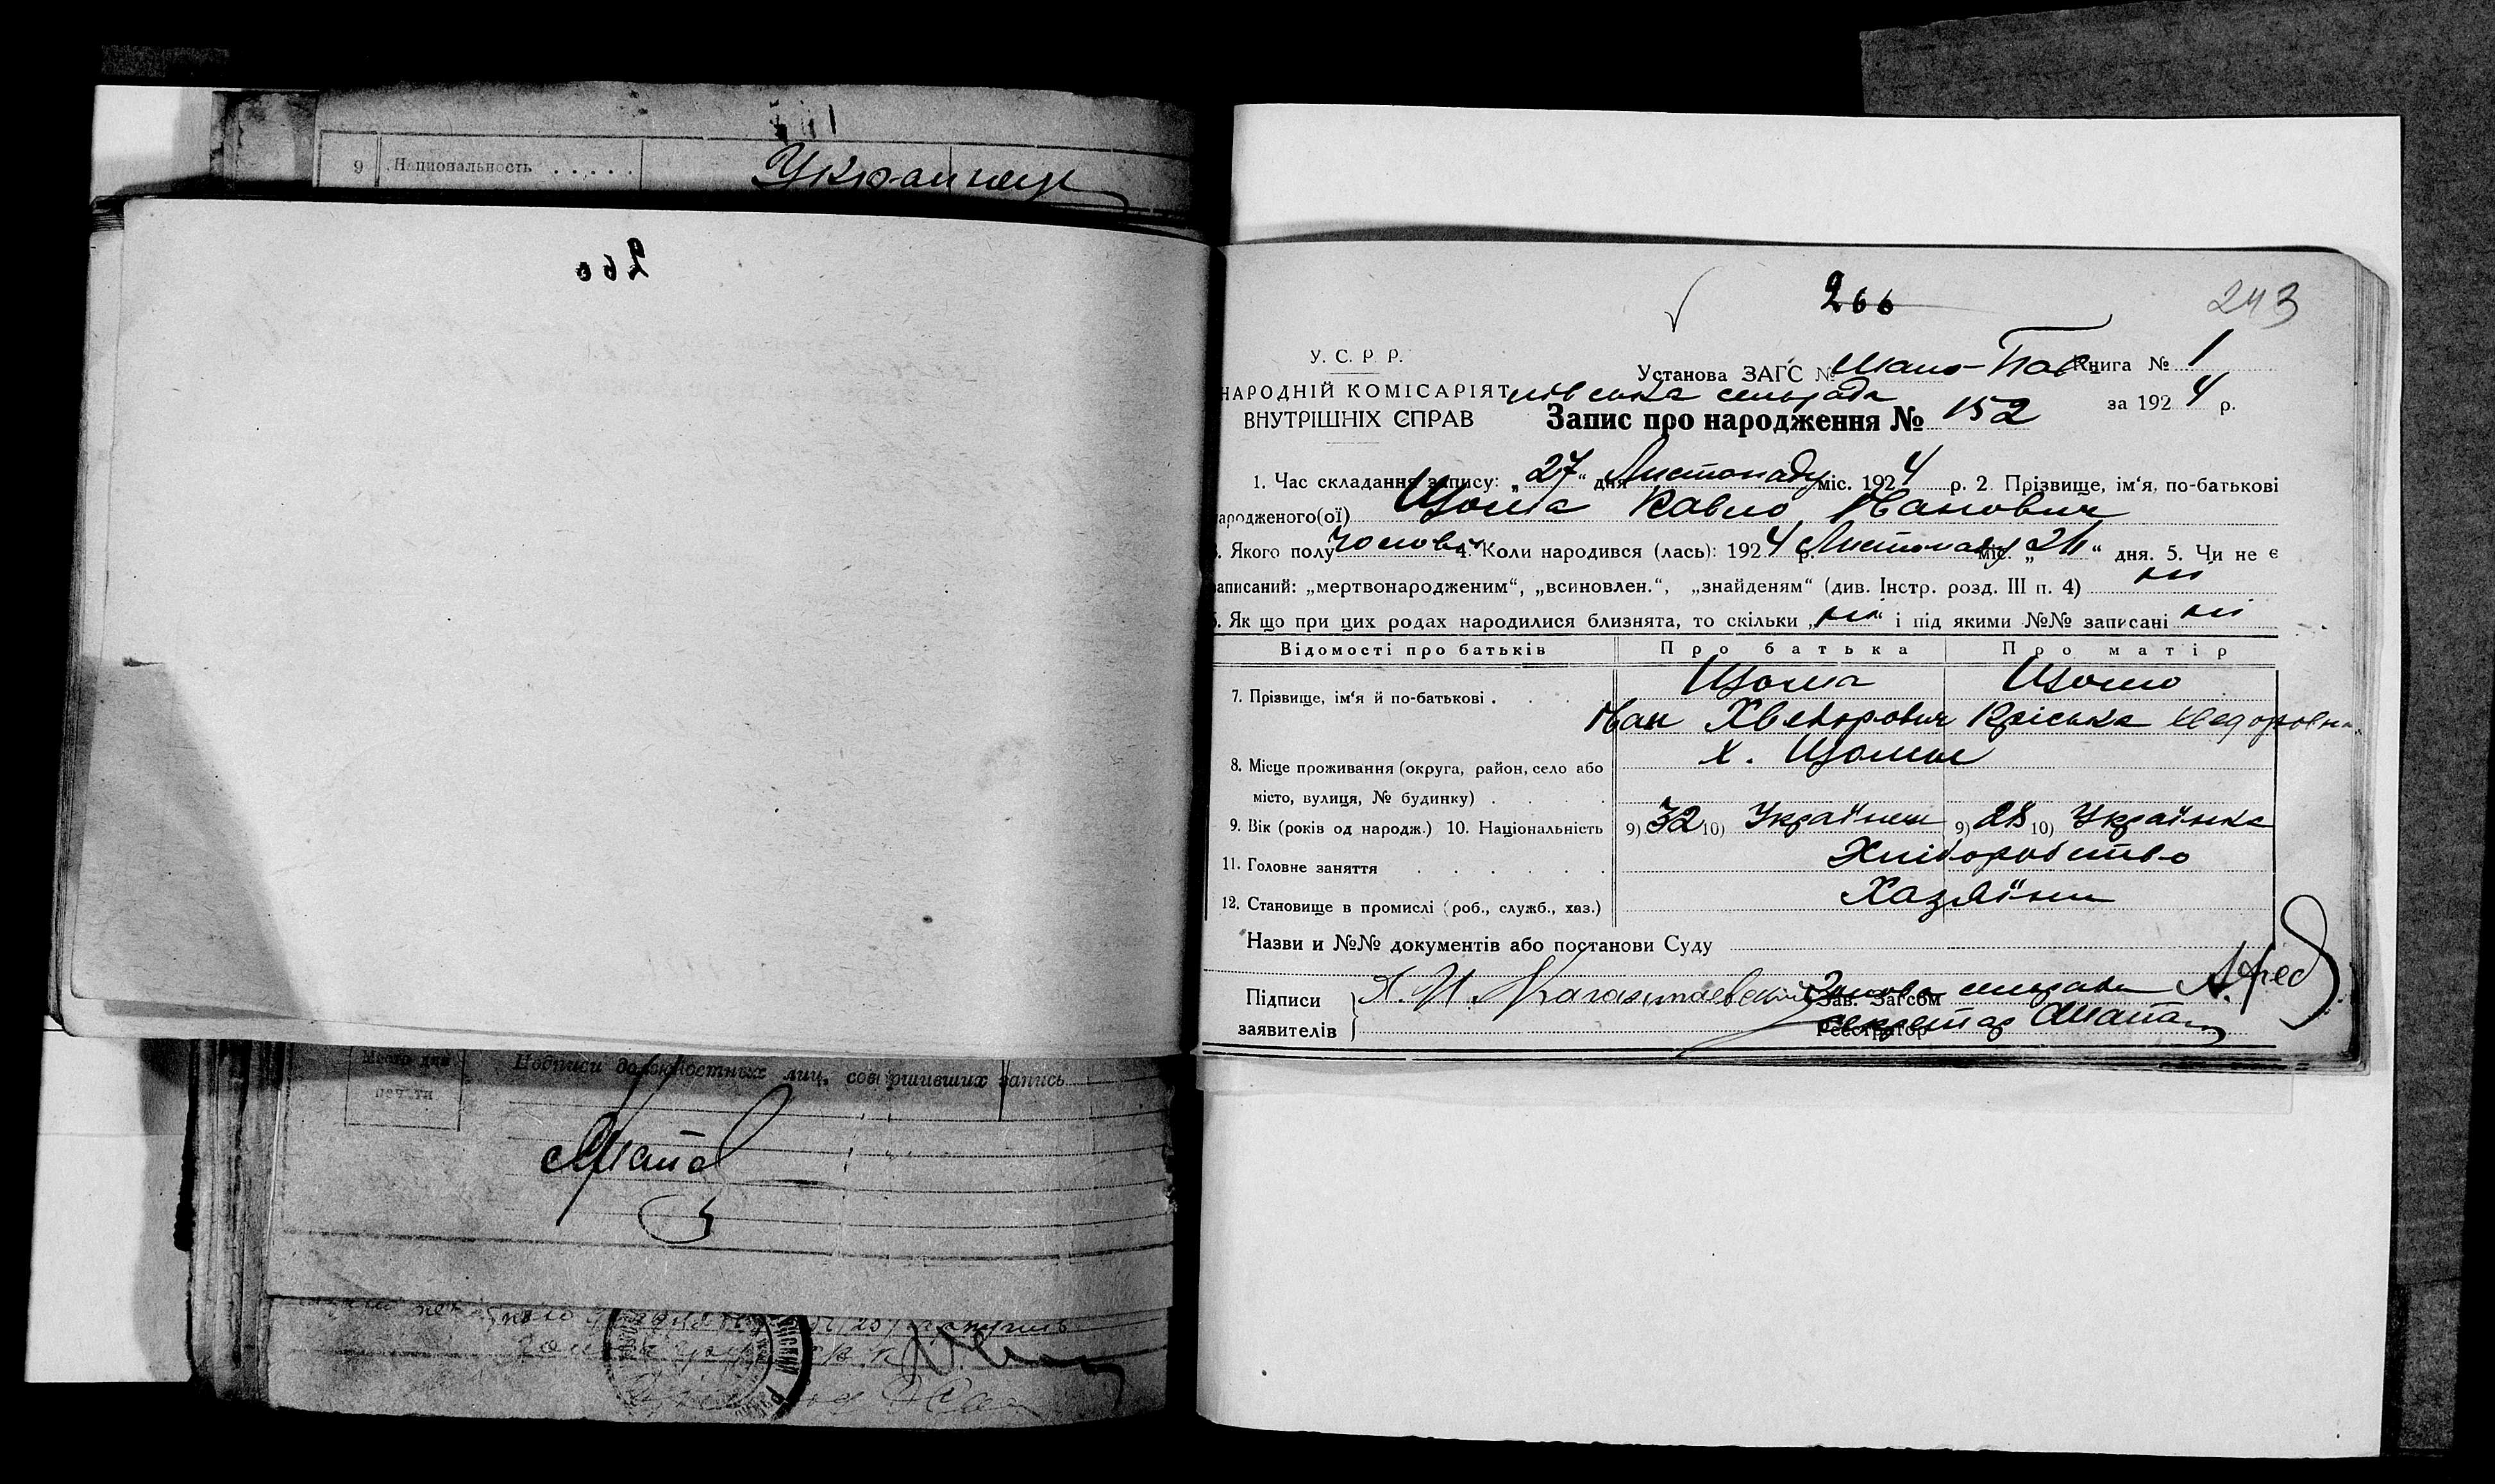 9 Национальность . . . . . Украинец
266
266
243
У. С. Р. Р.
Установа ЗАГС № Мало-Пав Книга № 1
НАРОДНІЙ КОМІСАРІЯТ лівська сельрада
за 1924 р.
ВНУТРІШНІХ СПРАВ
Запис про народження № 152
1. Час складання запису: „27“ дня Листопаду міс. 1924 р. 2. Прізвище, ім‘я, по-батькові
народженого(ої) Цьома Павло Иванович
3. Якого полу чолов. 4. Коли народився (лась): 1924 р. Листопаду міс. „26“ дня. 5. Чи не є
записаний: „мертвонародженим“, „всиновлен.“, „знайденям“ (див. Інстр. розд. III п. 4) ні
6. Як що при цих родах народилися близнята, то скільки „ні“ і під якими №№ записані ні
Відомості про батьків Про батька Про матір
Цьома Цьома
7. Прізвище, ім‘я й по-батькові .
Иван Хведорович Пріська Хведоровна
х. Цьоми
8. Місце проживання (округа, район, село або
місто, вулиця, № будинку) .
9. Вік (років од народж.) 10. Національність 9) 32 10) Українец 9) 28 10) Українка
11. Головне заняття Хліборобство
12. Становище в промислі (роб., служб., хаз.) Хазяїни
Назви и №№ документів або постанови Суду
Підписи Зав. Загсом Голова сельради
заявителів Реєстратор секретар
Место для
печати
Подписи должностных лиц, совершивших запись